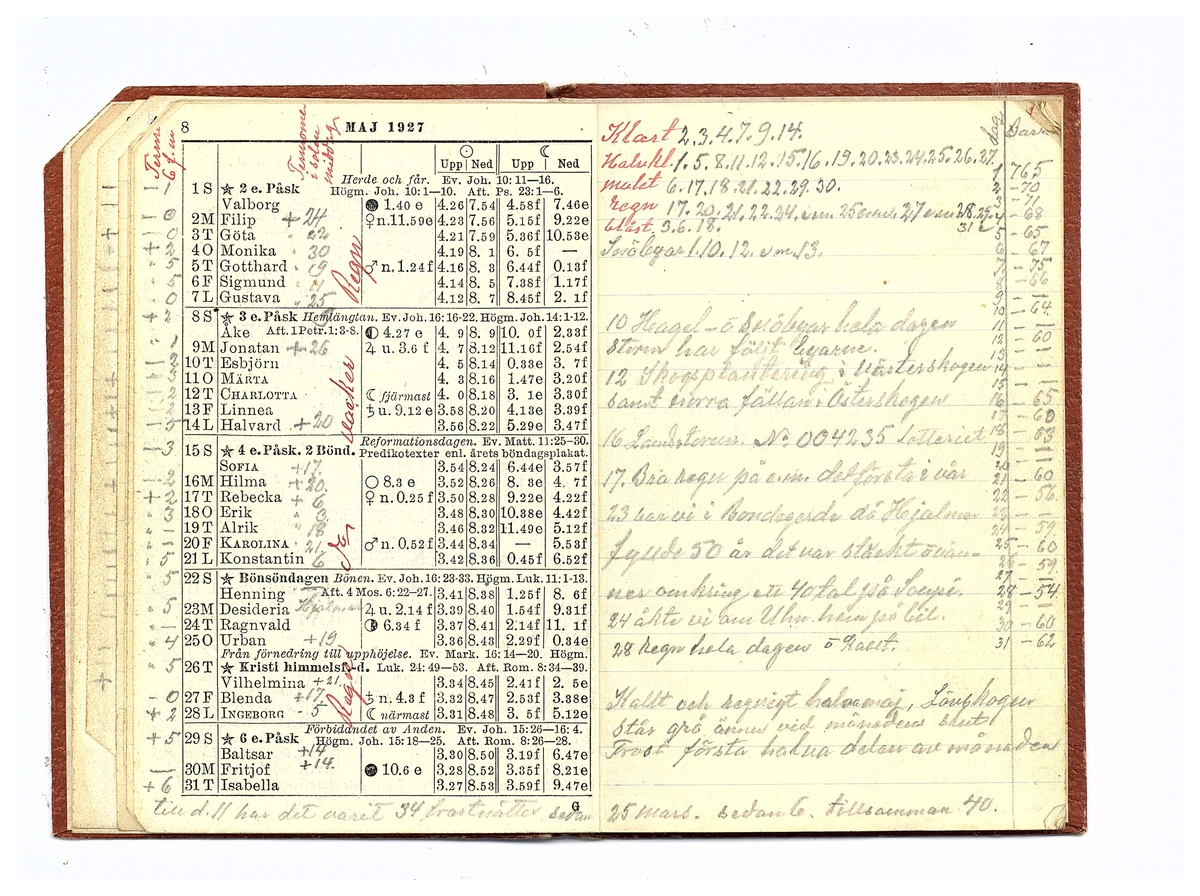 8 MAJ 1927
Upp Ned Upp Ned
Herde och får. Ev. Joh. 10:11—16.
1 S ★ 2 e. Påsk Högm. Joh. 10:1—10. Aft. Ps. 23:1—6.
Valborg 1.40 e 4.26 7.54 4.58f 7.46e
2M Filip +24 ♀n.11.59e 4.23 7.56 5.15f 9.22e
3T Göta 22 4.21 7.59 5.36f 10.53e
4O Monika 30 4.19 8. 1 6. 5f —
5T Gotthard 19 ♂ n. 1.24f 4.16 8. 3 6.44f 0.13f
6F Sigmund 11 4.14 8. 5 7.38f 1.17f
7L Gustava 25 4.12 8. 7 8.45f 2. 1f
Regn
8 S ★ 3 e. Påsk Hemlängtan. Ev. Joh. 16:16-22. Högm. Joh. 14:1-12.
Åke Aft. 1 Petr. 1:3-8. 4.27 e 4. 9 8. 9 10. 0f 2.33f
9M Jonatan +26 ♃ u. 3.6 f 4. 7 8.12 11.16f 2.54f
10T Esbjörn 4. 5 8.14 0.33e 3. 7f
11O MÄRTA 4. 3 8.16 1.47e 3.20f
12T CHARLOTTA ☾ fjärmast 4. 0 8.18 3. 1e 3.30f
13F Linnea ♄ u. 9.12 e 3.58 8.20 4.13e 3.39f
14L Halvard +20 3.56 8.22 5.29e 3.47f
vacker
Reformationsdagen. Ev. Matt. 11:25-30.
15 S ★ 4 e. Påsk. 2 Bönd. Predikotexter enl. årets böndagsplakat.
SOFIA +17 3.54 8.24 6.44e 3.57f
16M Hilma +20 8.3 e 3.52 8.26 8. 3e 4. 7f
17T Rebecka + 6 ♀ n. 0.25 f 3.50 8.28 9.22e 4.22f
18O Erik 3 3.48 8.30 10.38e 4.42f
19T Alrik 18 3.46 8.32 11.49e 5.12f
20F KAROLINA 21 ♂ n. 0.52 f 3.44 8.34 — 5.53f
21L Konstantin 6 3.42 8.36 0.45f 6.52f
22 S ★ Bönsöndagen Bönen. Ev. Joh. 16:23-33. Högm. Luk. 11:1-13.
Henning Aft. 4 Mos. 6:22—27. 3.41 8.38 1.25f 8. 6f
23M Desideria Hjalmar ♃ u. 2.14 f 3.39 8.40 1.54f 9.31f
24T Ragnvald 6.34 f 3.37 8.41 2.14f 11. 1f
25O Urban +19 3.36 8.43 2.29f 0.34e
Från förnedring till upphöjelse. Ev. Mark. 16:14—20. Högm.
26T ★ Kristi himmelsf-d. Luk. 24:49—53. Aft. Rom. 8:34—39.
Vilhelmina +21 3.34 8.45 2.41f 2. 5e
27F Blenda +17 ♄ n. 4.3 f 3.32 8.47 2.53f 3.38e
28L INGEBORG - 5 ☾ närmast 3.31 8.48 3. 5f 5.12e
Regn
Förbidandet av Anden. Ev. Joh. 15:26—16:4.
29 S ★ 6 e. Påsk Högm. Joh. 15:18—25. Aft. Rom. 8:26—28.
Baltsar +14 3.30 8.50 3.19f 6.47e
30M Fritjof +14 10.6 e 3.28 8.52 3.35f 8.21e
31T Isabella 3.27 8.53 3.59f 9.47e
G
till d. 11 har det varit 34 frostnätter sedan
Klart 2.3.4.7.9.14.
Halvkl. 1.5.8.11.12.15.16.19.20.23.24.25.26.27.
mulet 6.17.18.21.22.29.30.
Regn 17.20.21.22.24. em. 25 em. 27 em 28.29. 31
blåst. 3.6.18.
Snöbyar 1.10.12. em. 13.
10 Hagel- o Snöbyar hela dagen
storm har följt byarne.
12 Skogsplantering i Västerskogen
samt norra fällan i Österskogen
16 Landstorm. No 004235 lotteriet
17. Bra regn på e.m. det första i vår
23 var vi i Bondegärde då Hjalmar
fyllde 50 år det var släkt o vän-
ner omkring ett 40 tal på Soupé.
24 åkte vi om Uhn hem på bil.
28 Regn hela dagen o kallt.
Kallt och regnigt halva maj, Lövskogen
står grå ännu vid månadens slut.
Frost första halva delen av månaden
25 mars. sedan 6. tillsamman 40.
dag
1 765
2 -70
3 -71
4 -68
5 -65
6 -67
7 -75
8 -66
9 —
10 -64
11 —
12 -60
13 —
14 —
15 —
16 -65
17 -60
18 -63
19 —
20 —
21 -60
22 -56
23 —
24 -59
25 -60
26 -59
27 —
28 -54
29 —
30 -60
31 -62